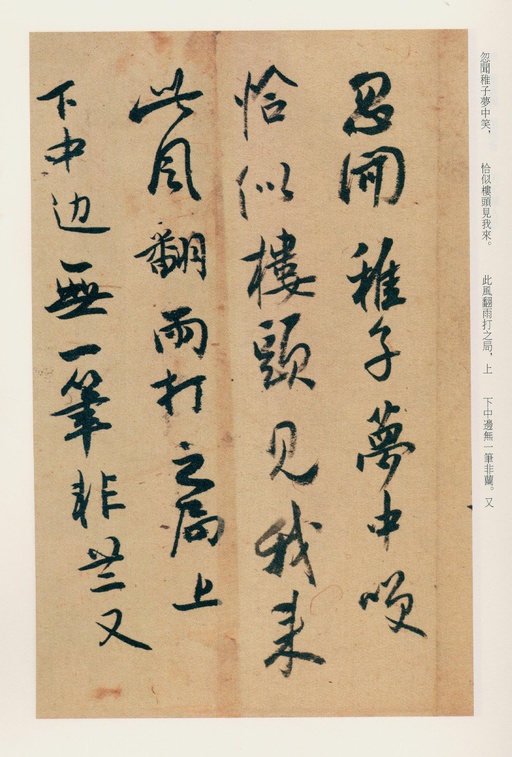 忽聞稚子夢中笑
恰似樓頭見我來
此風翻雨打之局上
下中边無一筆非蘭又
忽聞稚子夢中笑，　恰似樓頭見我來。　此風翻雨打之局，上　下中邊無一筆非蘭。又